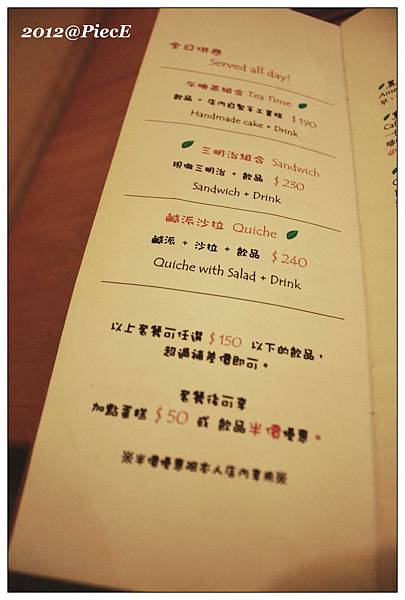 2012@PiecE
全日供應
Served all day!
午晚茶組合 Tea Time
飲品 + 店內自製手工蛋糕 $190
Handmade cake + Drink
三明治組合 Sandwich
現做三明治 + 飲品 $230
Sandwich + Drink
鹹派沙拉 Quiche
鹹派 + 沙拉 + 飲品 $240
Quiche with Salad + Drink
以上套餐可任選 $150 以下的飲品，
超過補差價即可。
套餐後可享
加點蛋糕 $50 或 飲品半價優惠。
※半價優惠限本人店內享用※
Ame